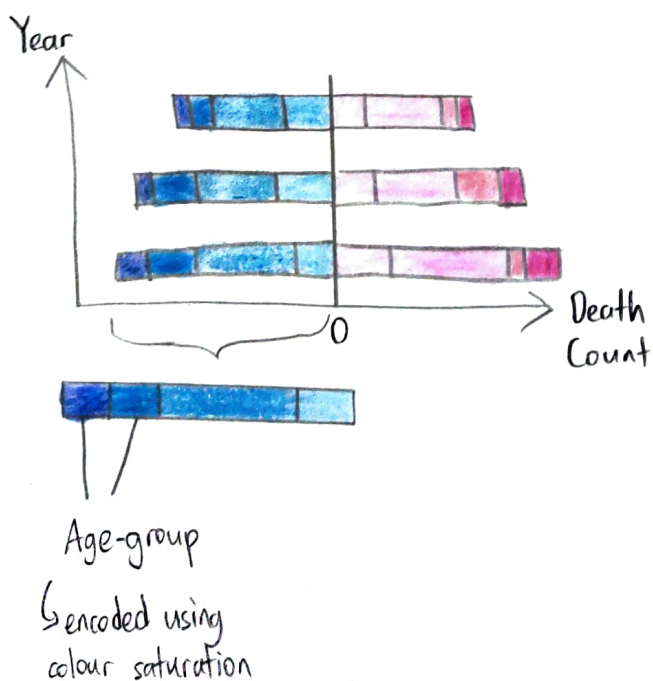 Year
0
Death
Count
Age-group
↳encoded using
colour saturation